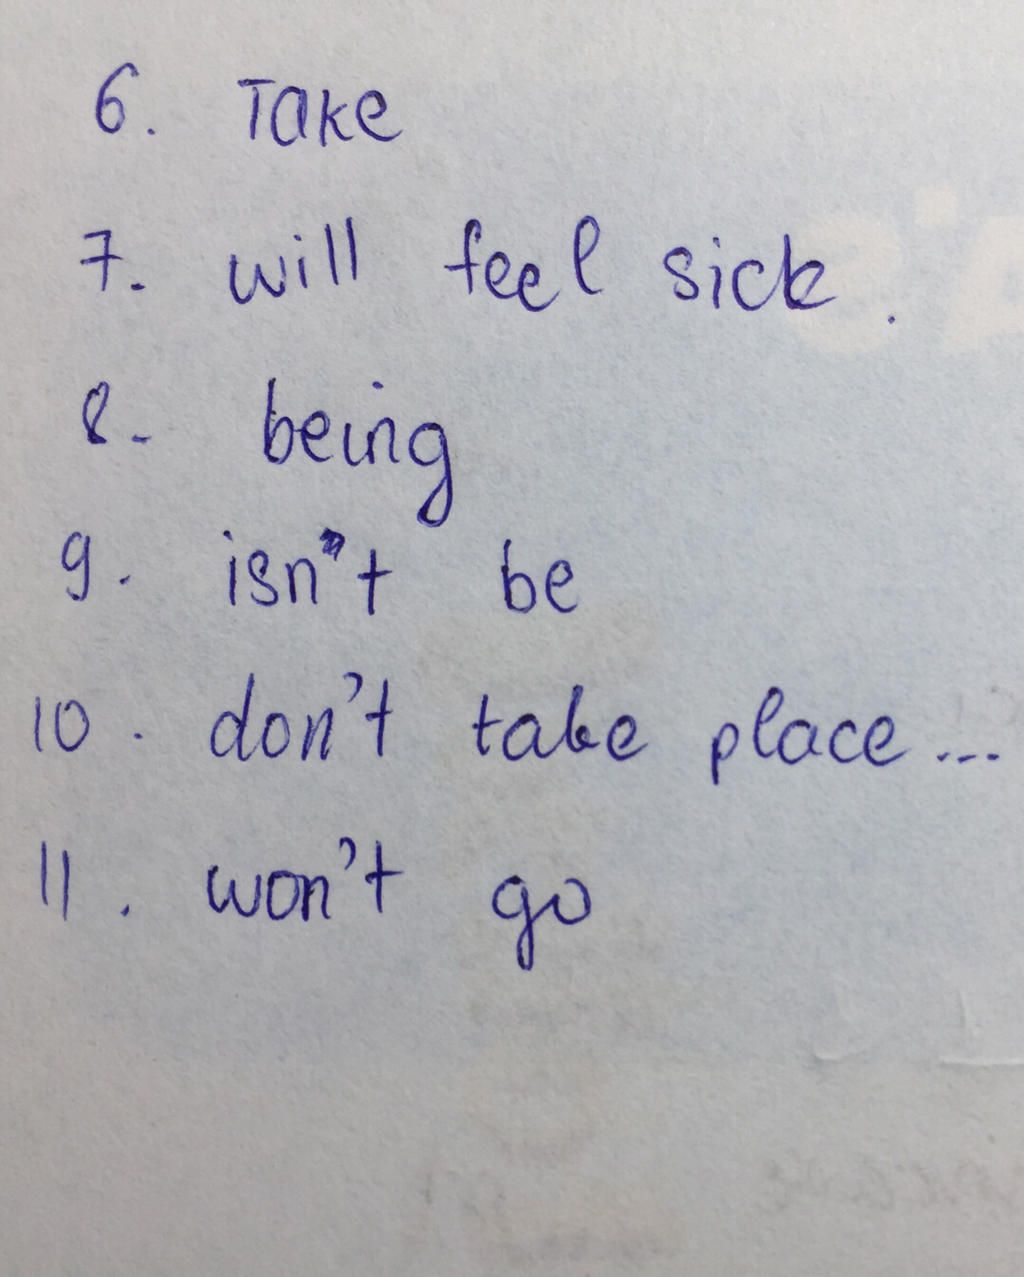 6. Take
7. will feel sick.
8. being
9. isn't be
10. don't take place...
11. won't go